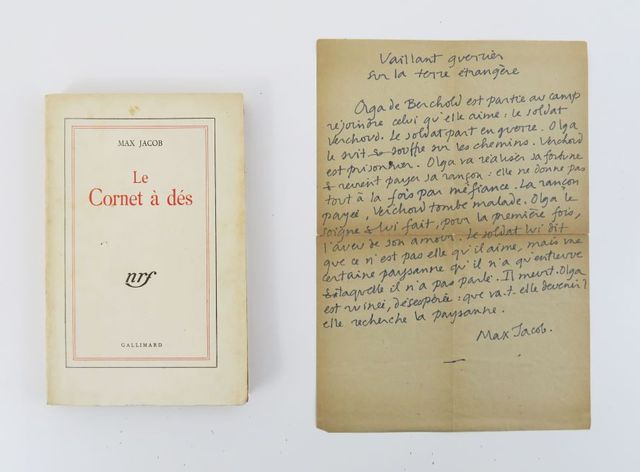 MAX JACOB
Le
Cornet à dés
nrf
GALLIMARD
Vaillant guerrier
sur la terre étrangère
Olga de Berchold est partie au camp
rejoindre celui qu'elle aime : le soldat
Verchoud. Le soldat part en guerre. Olga
le suit & souffre sur les chemins. Verchord
est prisonnier. Olga va réaliser sa fortune
& revient payer sa rançon : elle ne donne pas
tout à la fois par méfiance. La rançon
payée, Verchord tombe malade. Olga le
soigne & lui fait, pour la première fois,
l'aveu de son amour. Le soldat lui dit
que ce n'est pas elle qu'il aime, mais une
certaine paysanne qu'il n'a qu'entrevue
& à laquelle il n'a pas parlé. Il meurt. Olga
est ruinée, désespérée : que va-t-elle devenir ?
elle recherche la paysanne.
Max Jacob.